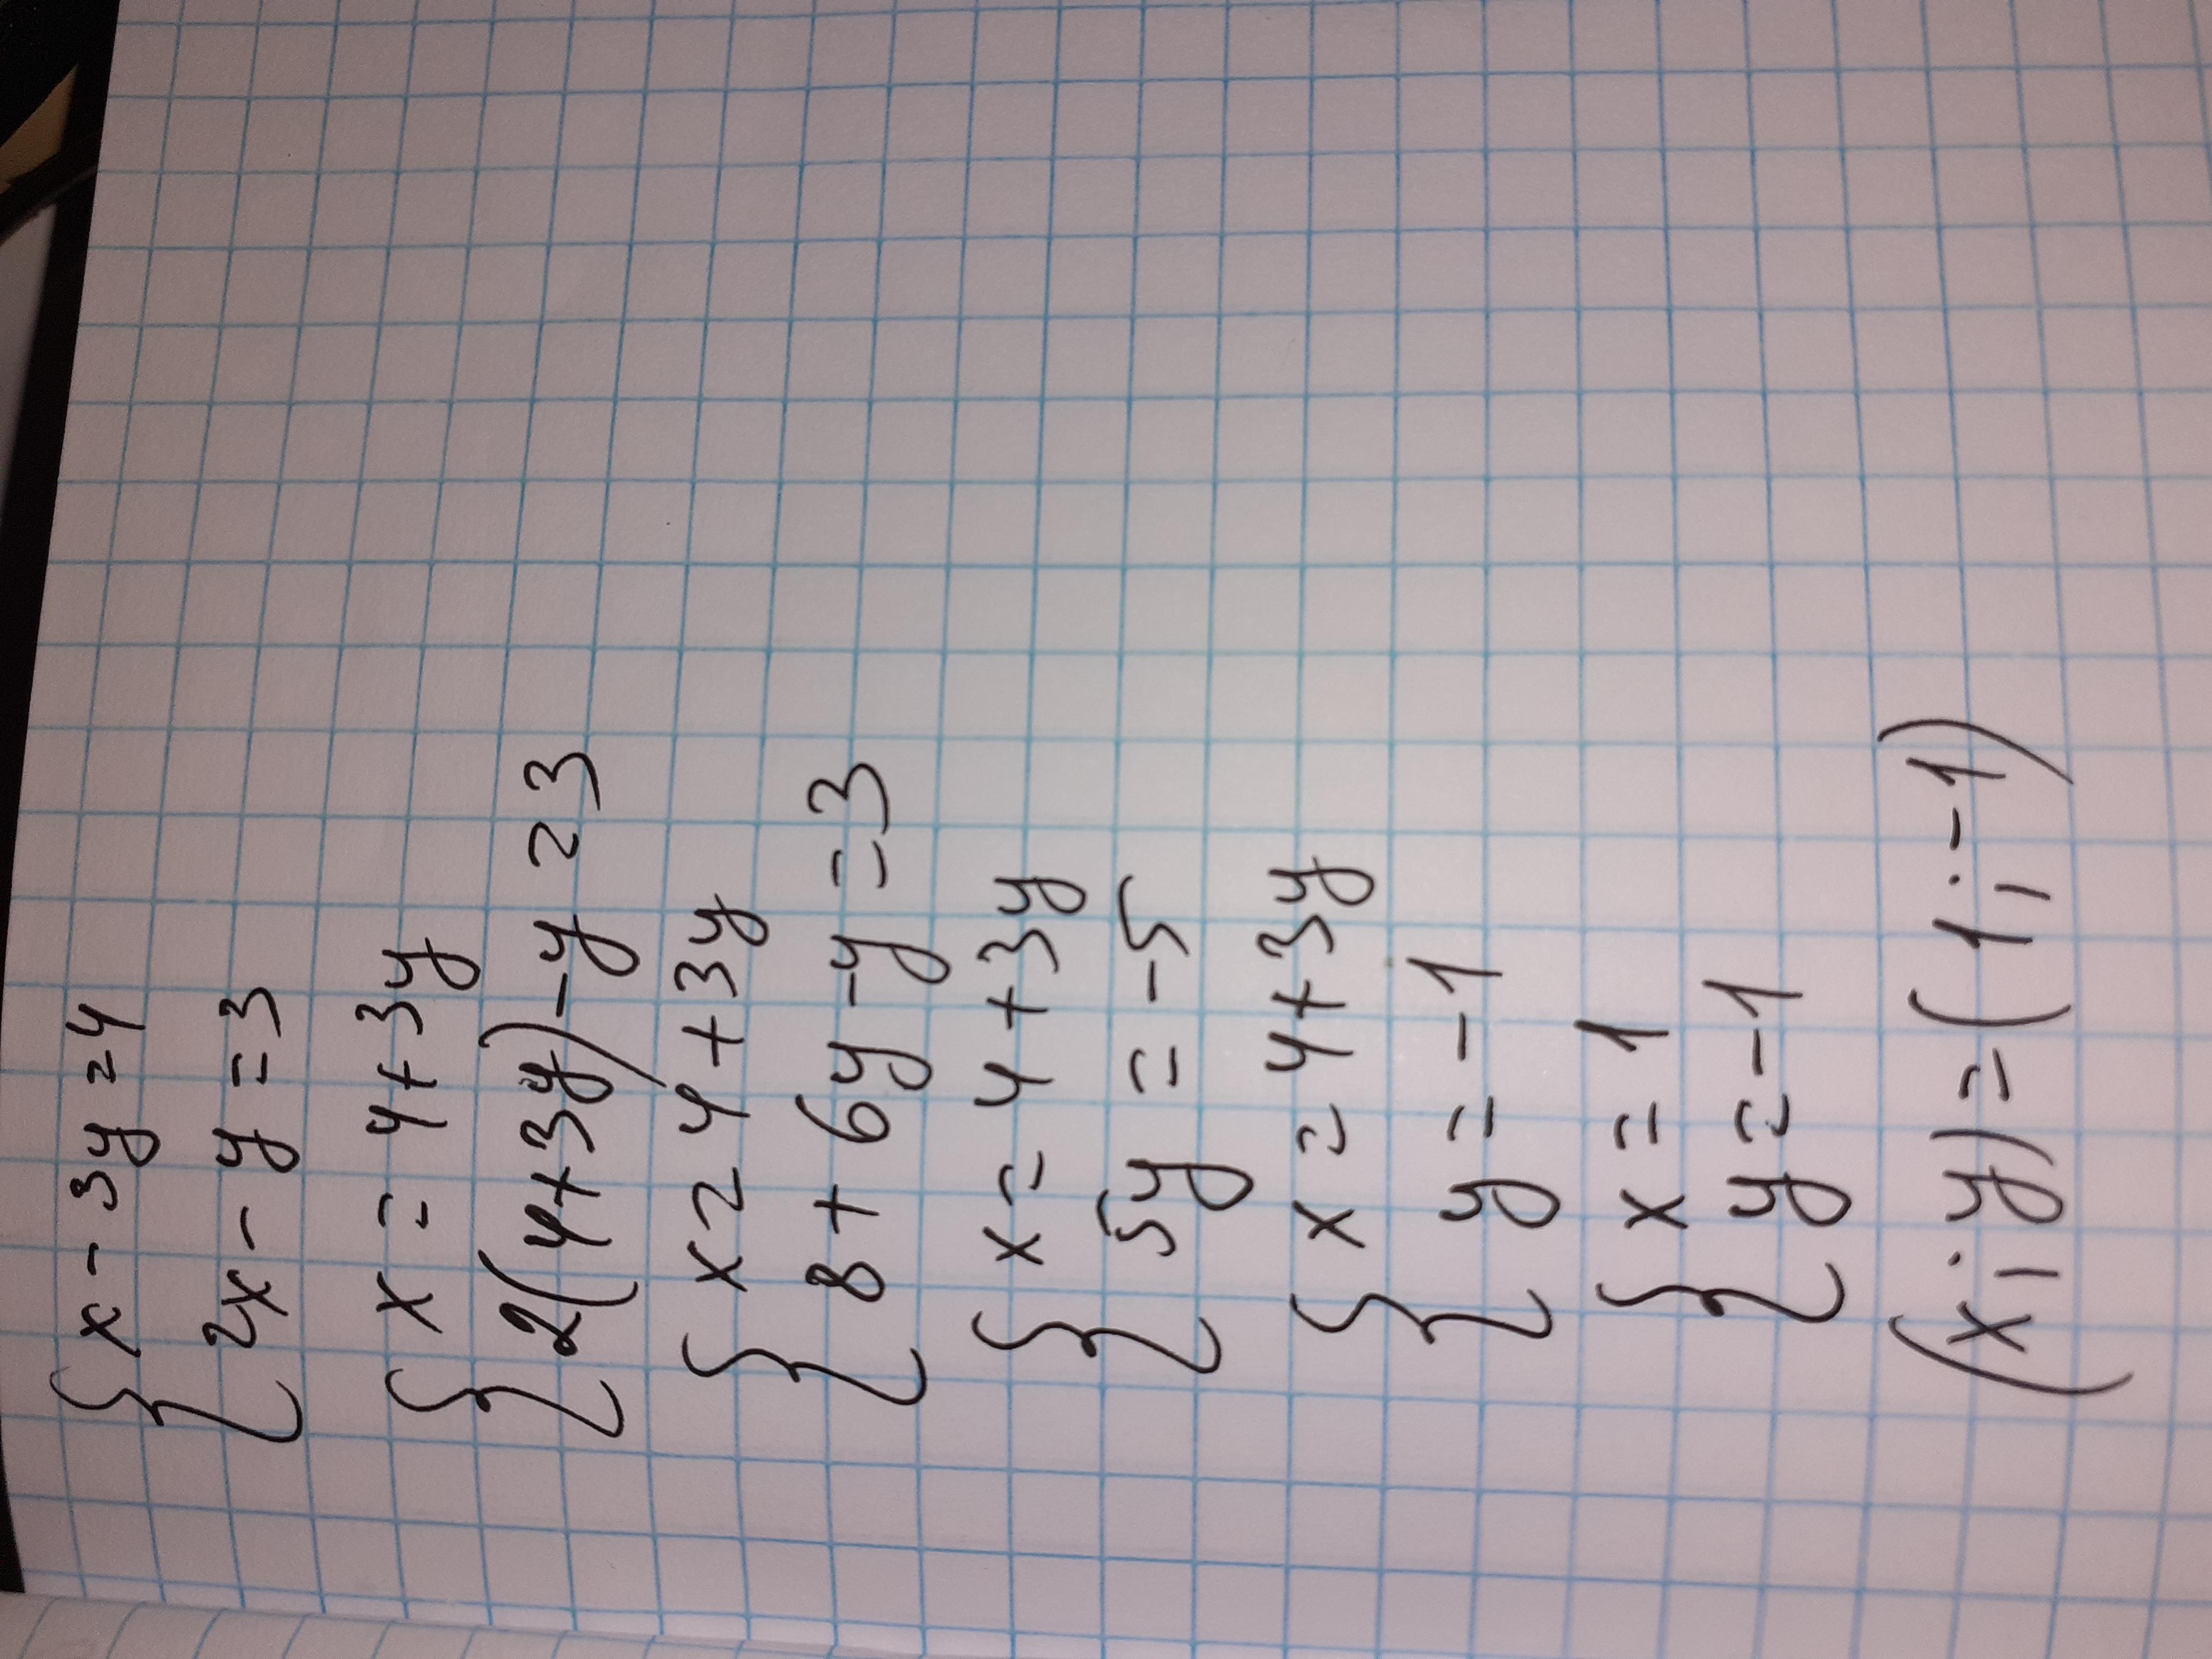 { x - 3y = 4
2x - y = 3
{ x = 4 + 3y
2(4 + 3y) - y = 3
{ x = 4 + 3y
8 + 6y - y = 3
{ x = 4 + 3y
5y = -5
{ x = 4 + 3y
y = -1
{ x = 1
y = -1
(x; y) = (1; -1)